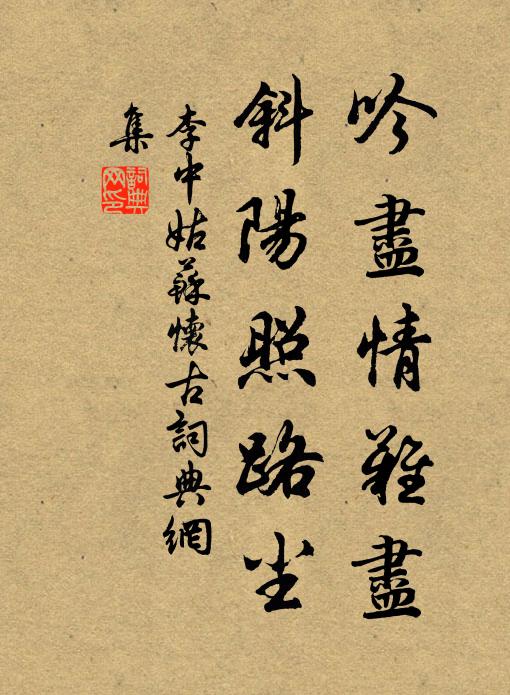 吟盡情難盡
斜陽照路塵
李中姑蘇懷古詞典網
集
詞典网印